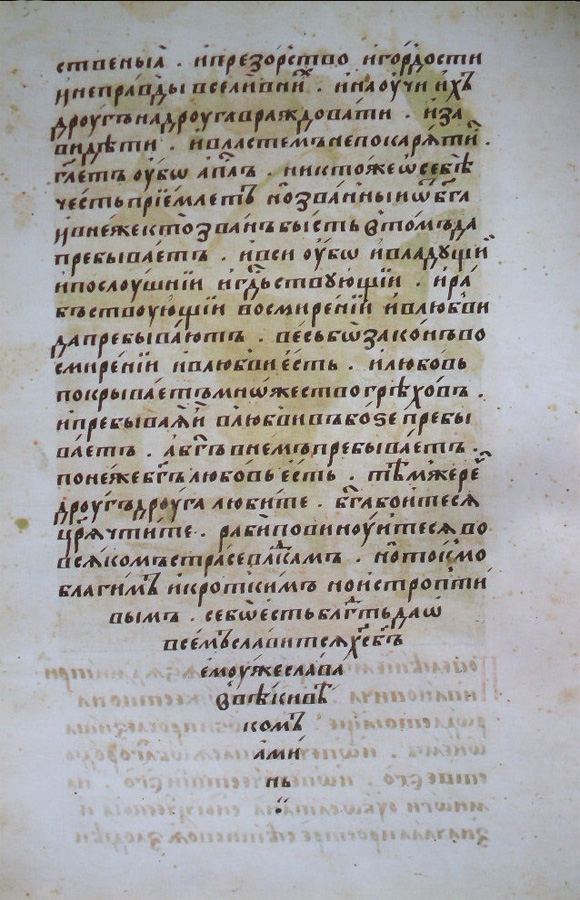 ственыѧ . ипрезорство игордости
инеправды вселивый . инаоучи ихъ
дроугъ надроуга враждовати . иза
видѣти . ивластемъ непокарѧтиⷭ .
гл҃етъ оубѡ ап҃лъ . никтоже ѡсебѣ
честь прїемлетъ нозванныи ѿ бг҃а
ивнеже кто званъ бысть втомъ да
пребываетъ . ивси оубѡ ивладущїи
ипослоушнїи игд҃ьствующїи . ира
бъствоующїи восмиренїи ивлюбви
да пребываютъ . весь бѡ законъ во
смиренїи ивлюбви есть . илюбовь
покрываетъ мнѡжество грѣховъ .
ипребываѧй влюбви въ бозѣ пребы
ваетъ . абг҃ъ внемъ пребываетъ .
понеже бг҃ъ любовь есть . тѣмже реⷱ
дроугъ дроуга любите . бг҃а боитесѧ
цр҃ѧ чтите . раби повиноуитесѧ во
всѧкомъ страсе влⷣкамъ . нотокмо
благимъ икроткимъ ноистропти
вымъ . себѡ есть блгⷣть да ѡ
всемъ славитсѧ хс҃ бг҃ъ
емоуже слава
ввѣки вѣ
комъ
ами
нь